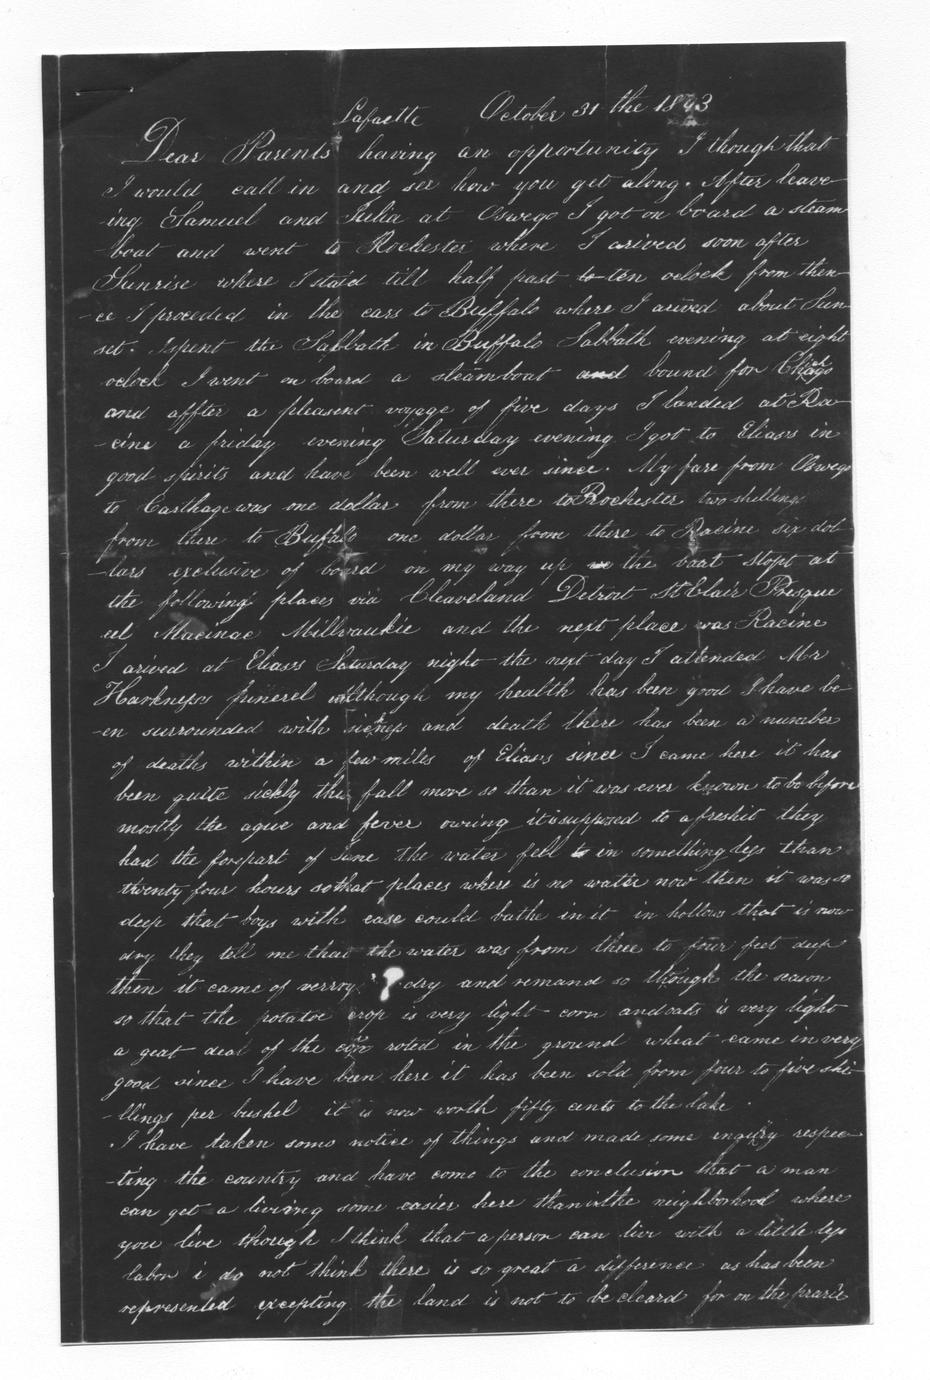 Lafaette October 31 the 1843
Dear Parents having an oppertunity I though that
I would call in and see how you get along. After leave
-ing Samuel and Julia at Oswego I got on board a steam
-boat and went to Rochester where I arived soon after
Sunrise where I staid till half past to ten oclock from then-
-ce I proceded in the cars to Buffalo where I arived about Sun-
set. I spent the Sabbath in Buffalo Sabbath evening at eight
oclock I went on board a steamboat and bound for
and affter a pleasent voyage of five days I landed at Ra-
-cine a friday evening Saturday evening I got to Eliass in
good spirits and have been well ever since. My fare from Oswego
to Carthage was one dollar from there to Rochester two shillings
from there to Buffalo one dollar from there to Racine six dol
-lars exclusive of board on my way up the boat stopt at
the following places via Cleaveland Detroit St Clair Presque
eel Macinac Millwaukie and the next place was Racine
I arived at Eliass Saturday night the next day I attended Mr
Harkness funerel although my health has been good I have be-
-en surrounded with sickness and death there has been a number
of deaths within a few miles of Eliass since I came here it has
been quite sickly this fall more so than it was ever known to be before
mostly the ague and fever owing it is supposed to a freshit they
had the forepart of June the water fell to in something less than
twenty four hours so that places where is no water now then it was so
deep that boys with ease could bathe in it in hollows that is now
dry they tell me that the water was from three to four feet deep
then it came of verry dry and remand so though the season
so that the potatoe crop is very light corn and oats is very light
a geat deal of the corn roted in the ground wheat came in very
good since I have been here it has been sold from four to five shi-
-llings per bushel it is now worth fifty cents to the lake.
I have taken some notice of things and made some inquiry respec-
-ting the country and have come to the conclusion that a man
can get a living some easier here than in the neighborhood where
you live though I think that a person can live with a little less
labor i do not think there is so great a difference as has been
represented excepting the land is not to be cleard for on the prarie